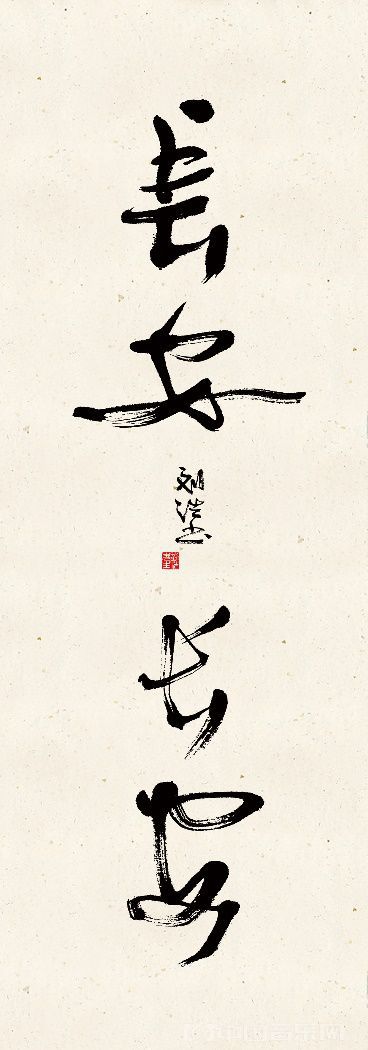 長安
刘浩书
长安